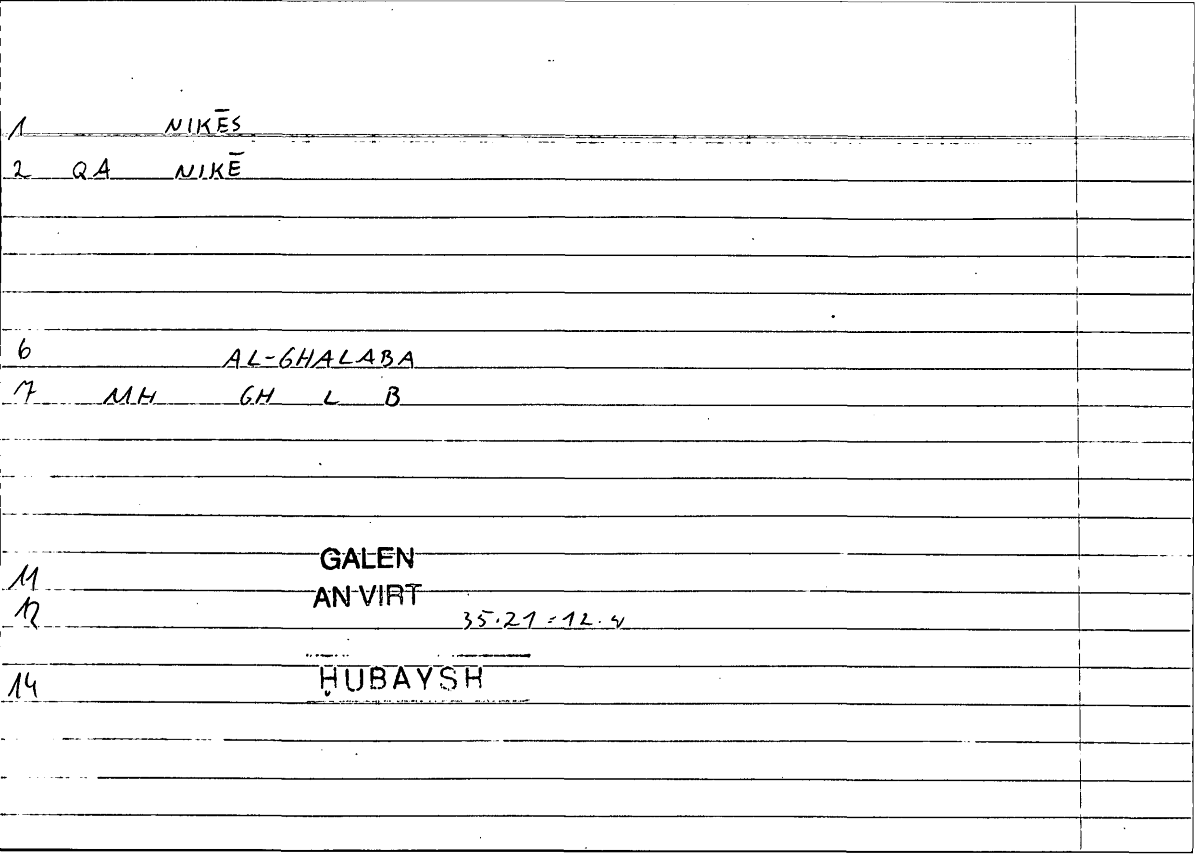 1 NIKĒS
2 QA NIKĒ
6 AL-GHALABA
7 MH GH L B
11 GALEN
12 AN VIRT
35.21 = 12.
14 ḤUBAYSH